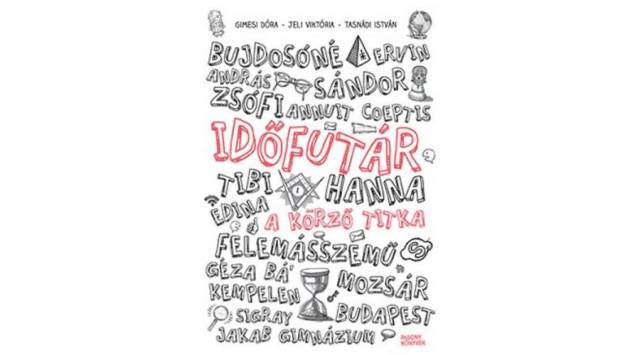 GIMESI DÓRA - JELI VIKTÓRIA - TASNÁDI ISTVÁN
BUJDOSÓNÉ ERVIN
ANDRÁS SÁNDOR
ZSÓFI ANNUIT COEPTIS
IDŐFUTÁR
TIBI HANNA
EDINA A KÖRZŐ TITKA
FELEMÁSSZEMŰ
GÉZA BÁ' MOZSÁR
KEMPELEN
SIGRAY BUDAPEST
JAKAB GIMNÁZIUM
PAGONY
KÖNYVEK